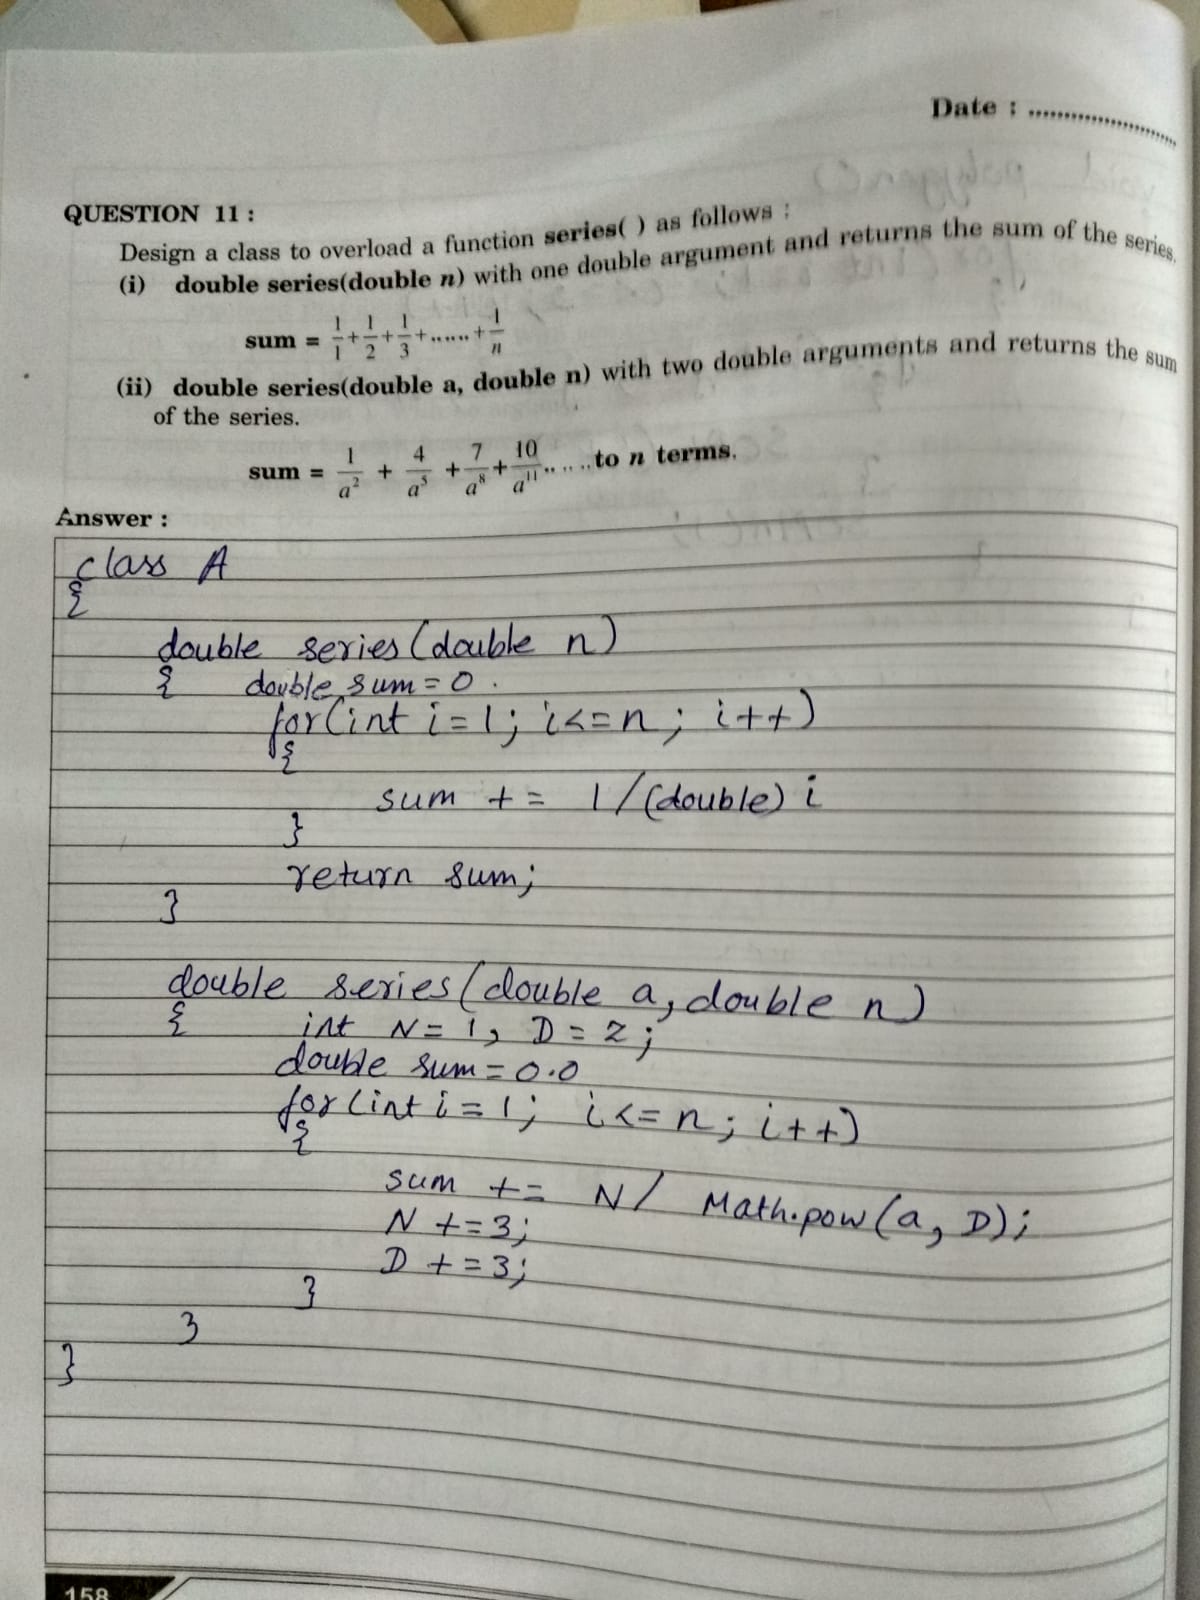 Date : ........................
QUESTION 11 :
Design a class to overload a function series( ) as follows :
(i) double series(double n) with one double argument and returns the sum of the series.
sum = 1/1 + 1/2 + 1/3 + ...... + 1/n
(ii) double series(double a, double n) with two double arguments and returns the sum
of the series.
sum = 1/a² + 4/a⁵ + 7/a⁸ + 10/a¹¹ .. .. .. to n terms.
Answer :
class A
{
double series(double n)
{ double sum=0.
for(int i=1; i<=n; i++)
{
sum += 1/(double) i
}
return sum;
}
double series(double a, double n)
{ int N=1, D=2;
double sum=0.0
for(int i=1; i<=n; i++)
{
sum += N/ Math.pow(a, D);
N +=3;
D +=3;
}
}
}
158